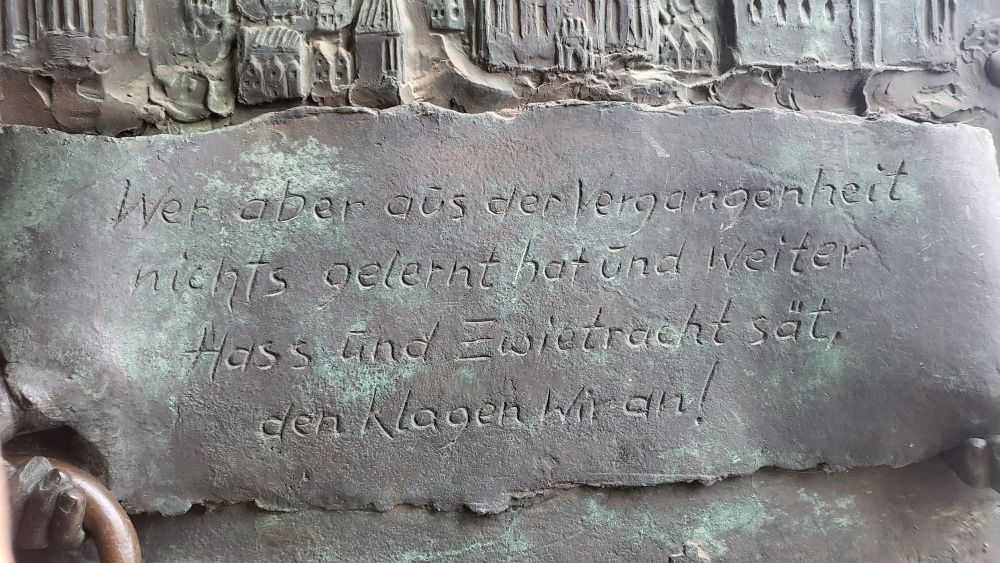 Wer aber aūs der Vergangenheit
nichts gelernt hat ūnd weiter
Hass ūnd Zwietracht sät,
den klagen wir an!